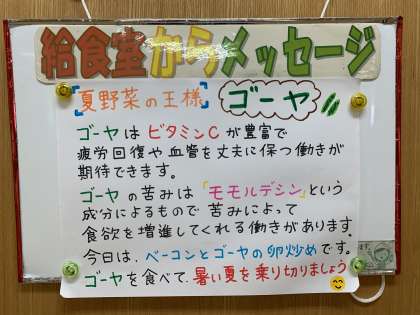 給食室からメッセージ
夏野菜の王様 ゴーヤ
ゴーヤは ビタミンCが豊富で
疲労回復や血管を丈夫に保つ働きが
期待できます。
ゴーヤの苦みは「モモルデシン」という
成分によるもので 苦みによって
食欲を増進してくれる働きがあります。
今日は、ベーコンとゴーヤの卵炒めです。
ゴーヤを食べて、暑い夏を乗り切りましょう